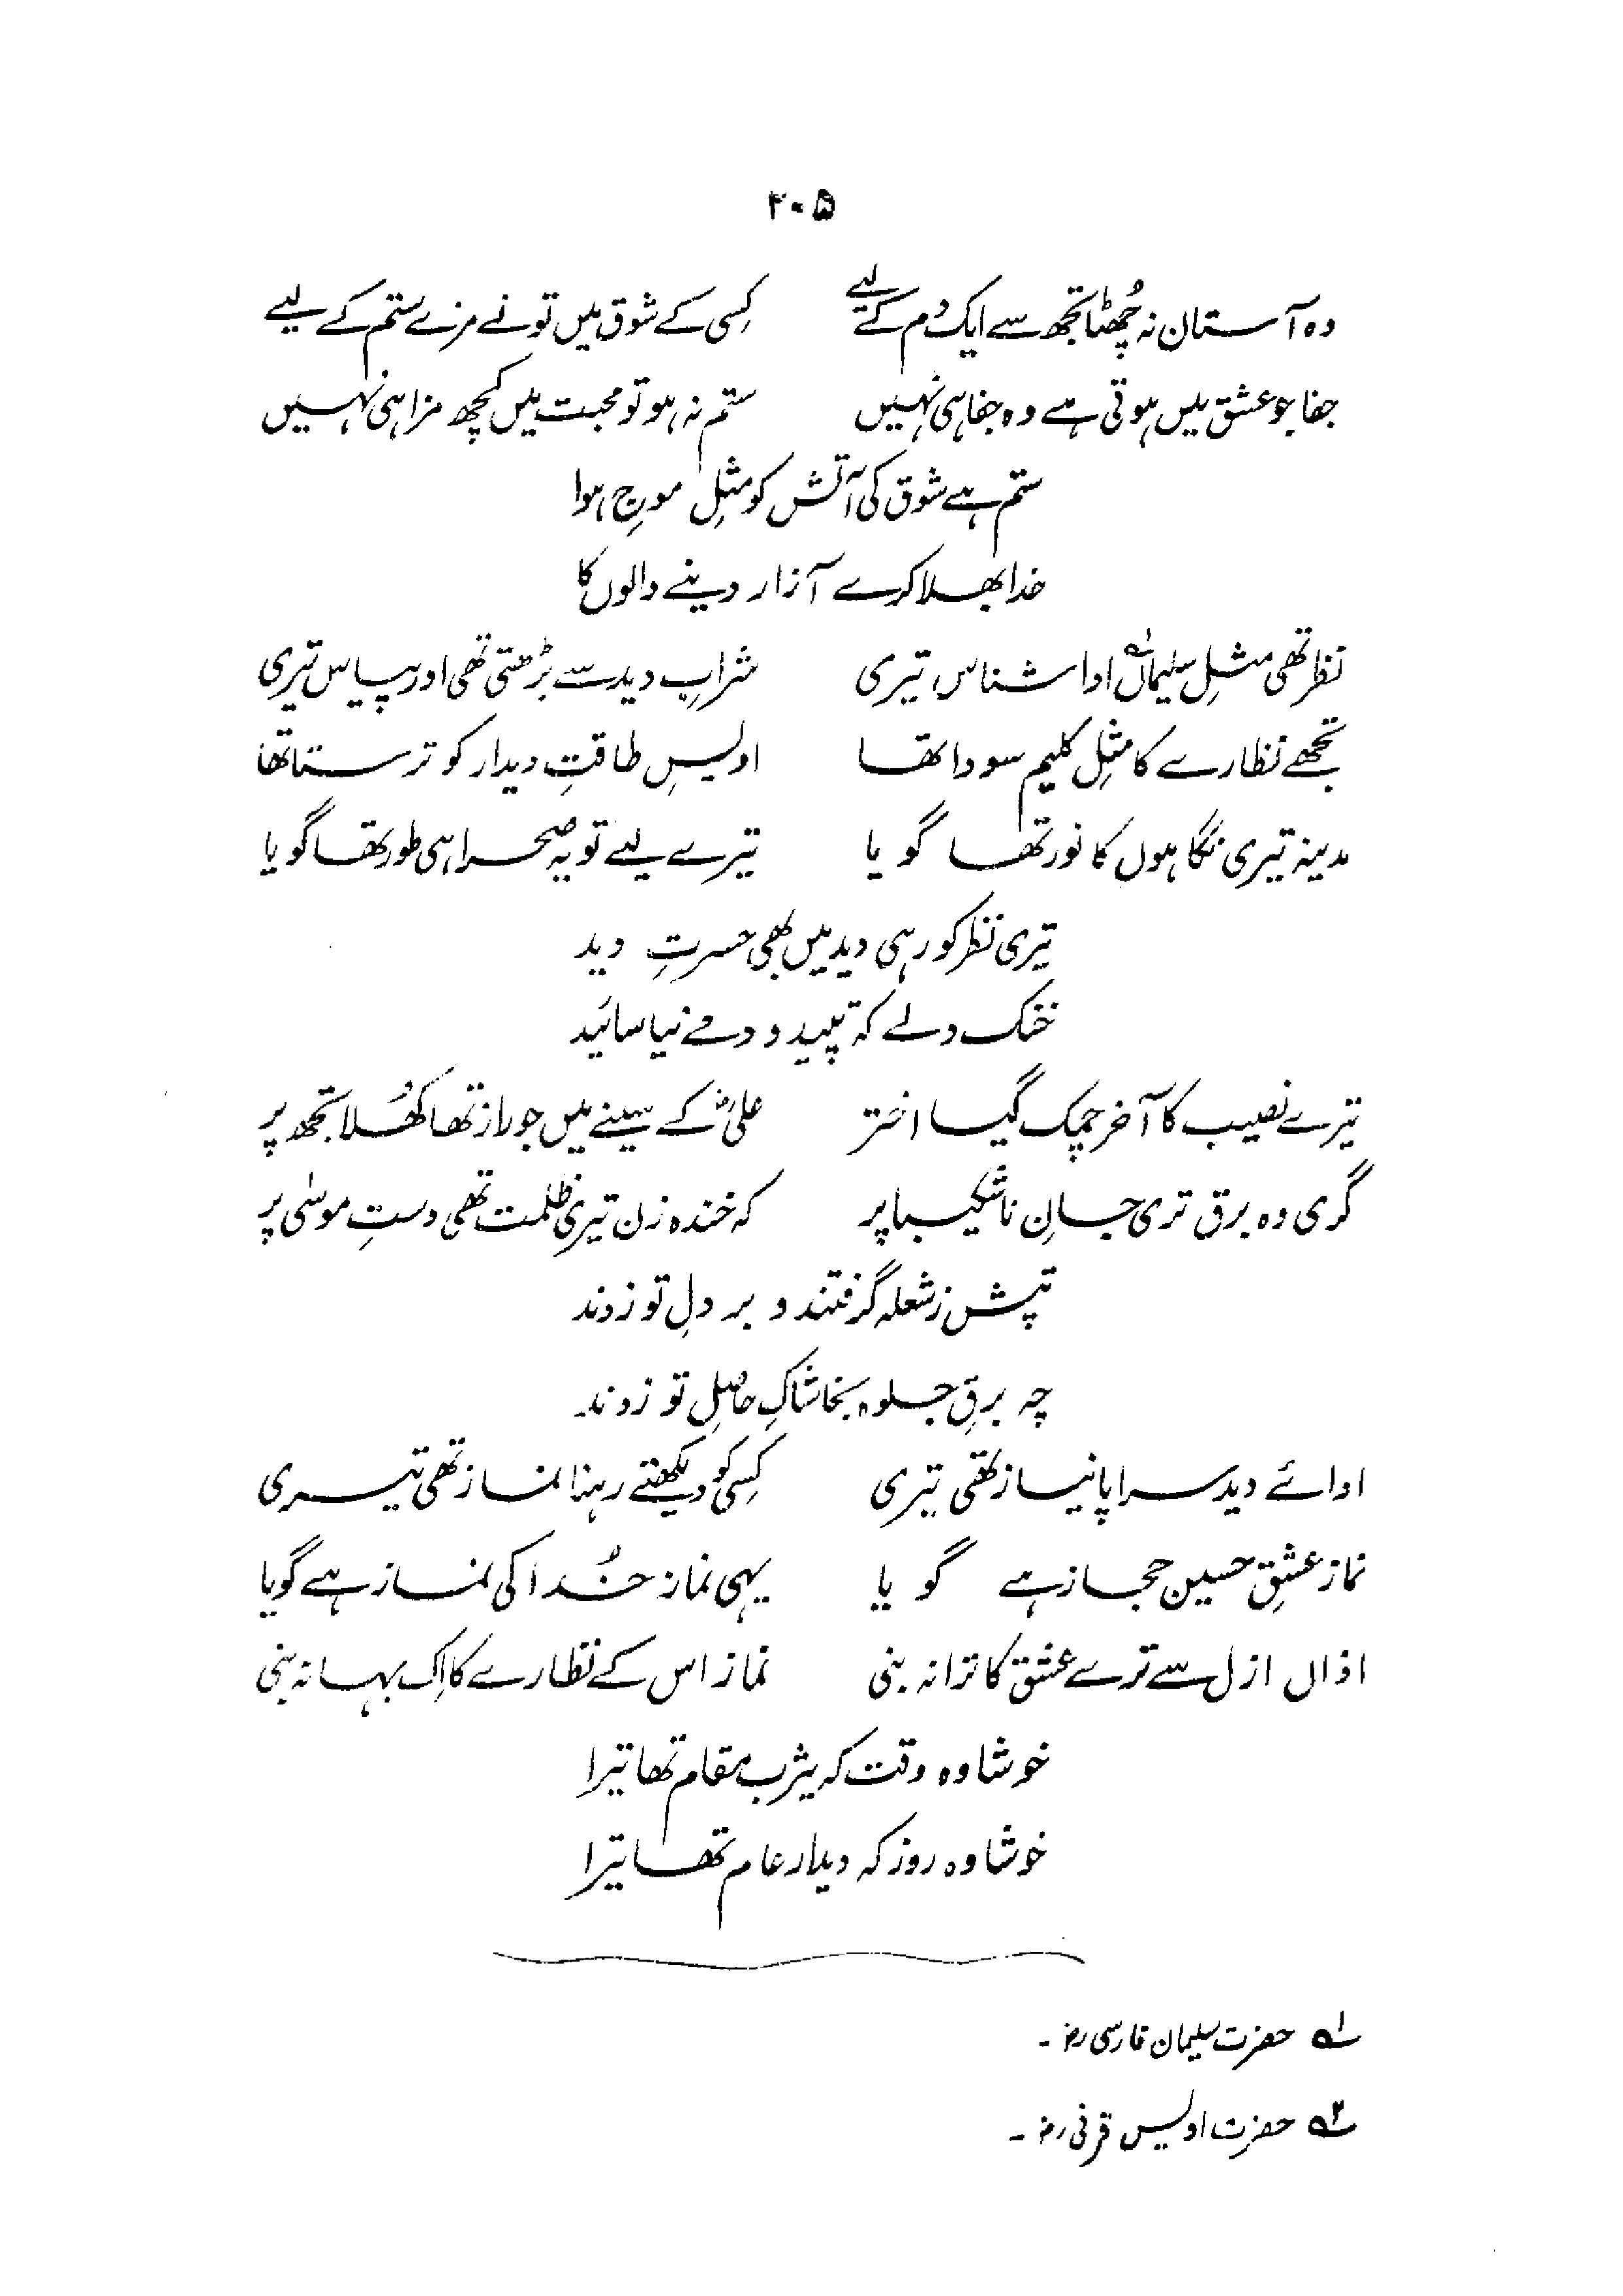 ۲۰۵
وہ آستان نہ چُھٹا تجھ سے ایک دم کے لیے کِسی کے شوق میں تو نے مزے ستم کے لیے
جفا جو عشق میں ہوتی ہے وہ جفا ہی نہیں ستم نہ ہو تو محبت میں کچھ مزا ہی نہیں
ستم ہے شوق کی آتش کو مثلِ موجِ ہوا
خدا بھلا کرے آزار دینے والوں کا
نظر تھی مثلِ سلیماں۱ؔ ادا شناس تیری شرابِ دید سے بڑھتی تھی اور پیاس تیری
تجھے نظارے کا مثلِ کلیم سودا تھا اویسِ طاقتِ دیدار کو ترستا تھا
مدینہ تیری نگاہوں کا نور تھا گویا تیرے لیے تو یہ صحرا ہی طور تھا گویا
تیری نظر کو رہی دید میں بھی حسرتِ دید
خنک دلے کہ تپید و دمے نیاسائید
تیرے نصیب کا آخر چمک گیا اختر علیؓ کے سینے میں جو راز تھا کُھلا تجھ پر
گری وہ برق تری جانِ ناشکیبا پر کہ خندہ زن تیری ظلمت تھی دستِ موسٰی پر
تپش ز شعلہ گرفتند و بر دلِ تو زدند
چہ برقِ جلوہ بخاشاکِ حاصلِ تو زدند
ادائے دید سراپا نیاز تھی تیری کِسی کو دیکھتے رہنا نماز تھی تیری
نماز عشقِ حسین حجاز ہے گویا یہی نماز خُدا کی نماز ہے گویا
اذاں ازل سے ترے عشق کا ترانہ بنی نماز اس کے نظارے کا اِک بہانہ بنی
خوشا وہ وقت کہ یثرب مقام تھا تیرا
خوشا وہ روز کہ دیدار عام تھا تیرا
۱ؔ حضرت سلیمان فارسی رضؓ ۔
۲ؔ حضرت اویس قرنی رضؓ ۔